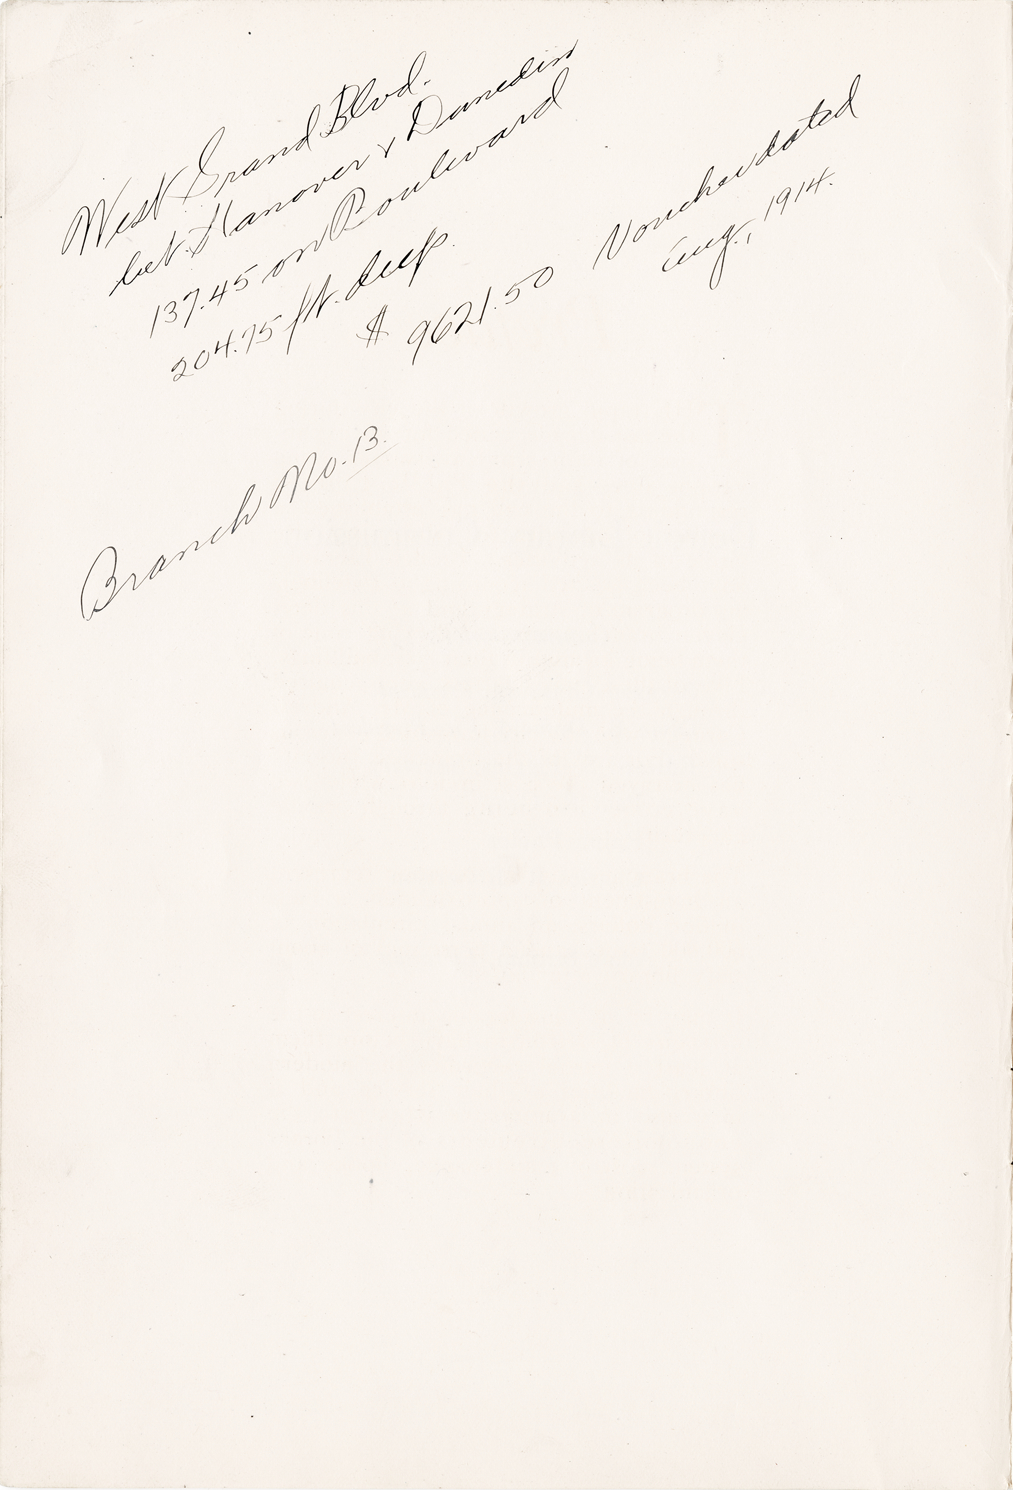 West Grand Blvd.
bet. Hanover & Dunedin
137.45 on Boulevard
204.75 ft. deep.
$ 9621.50 Voucher dated
Aug., 1914.
Branch No. 13.